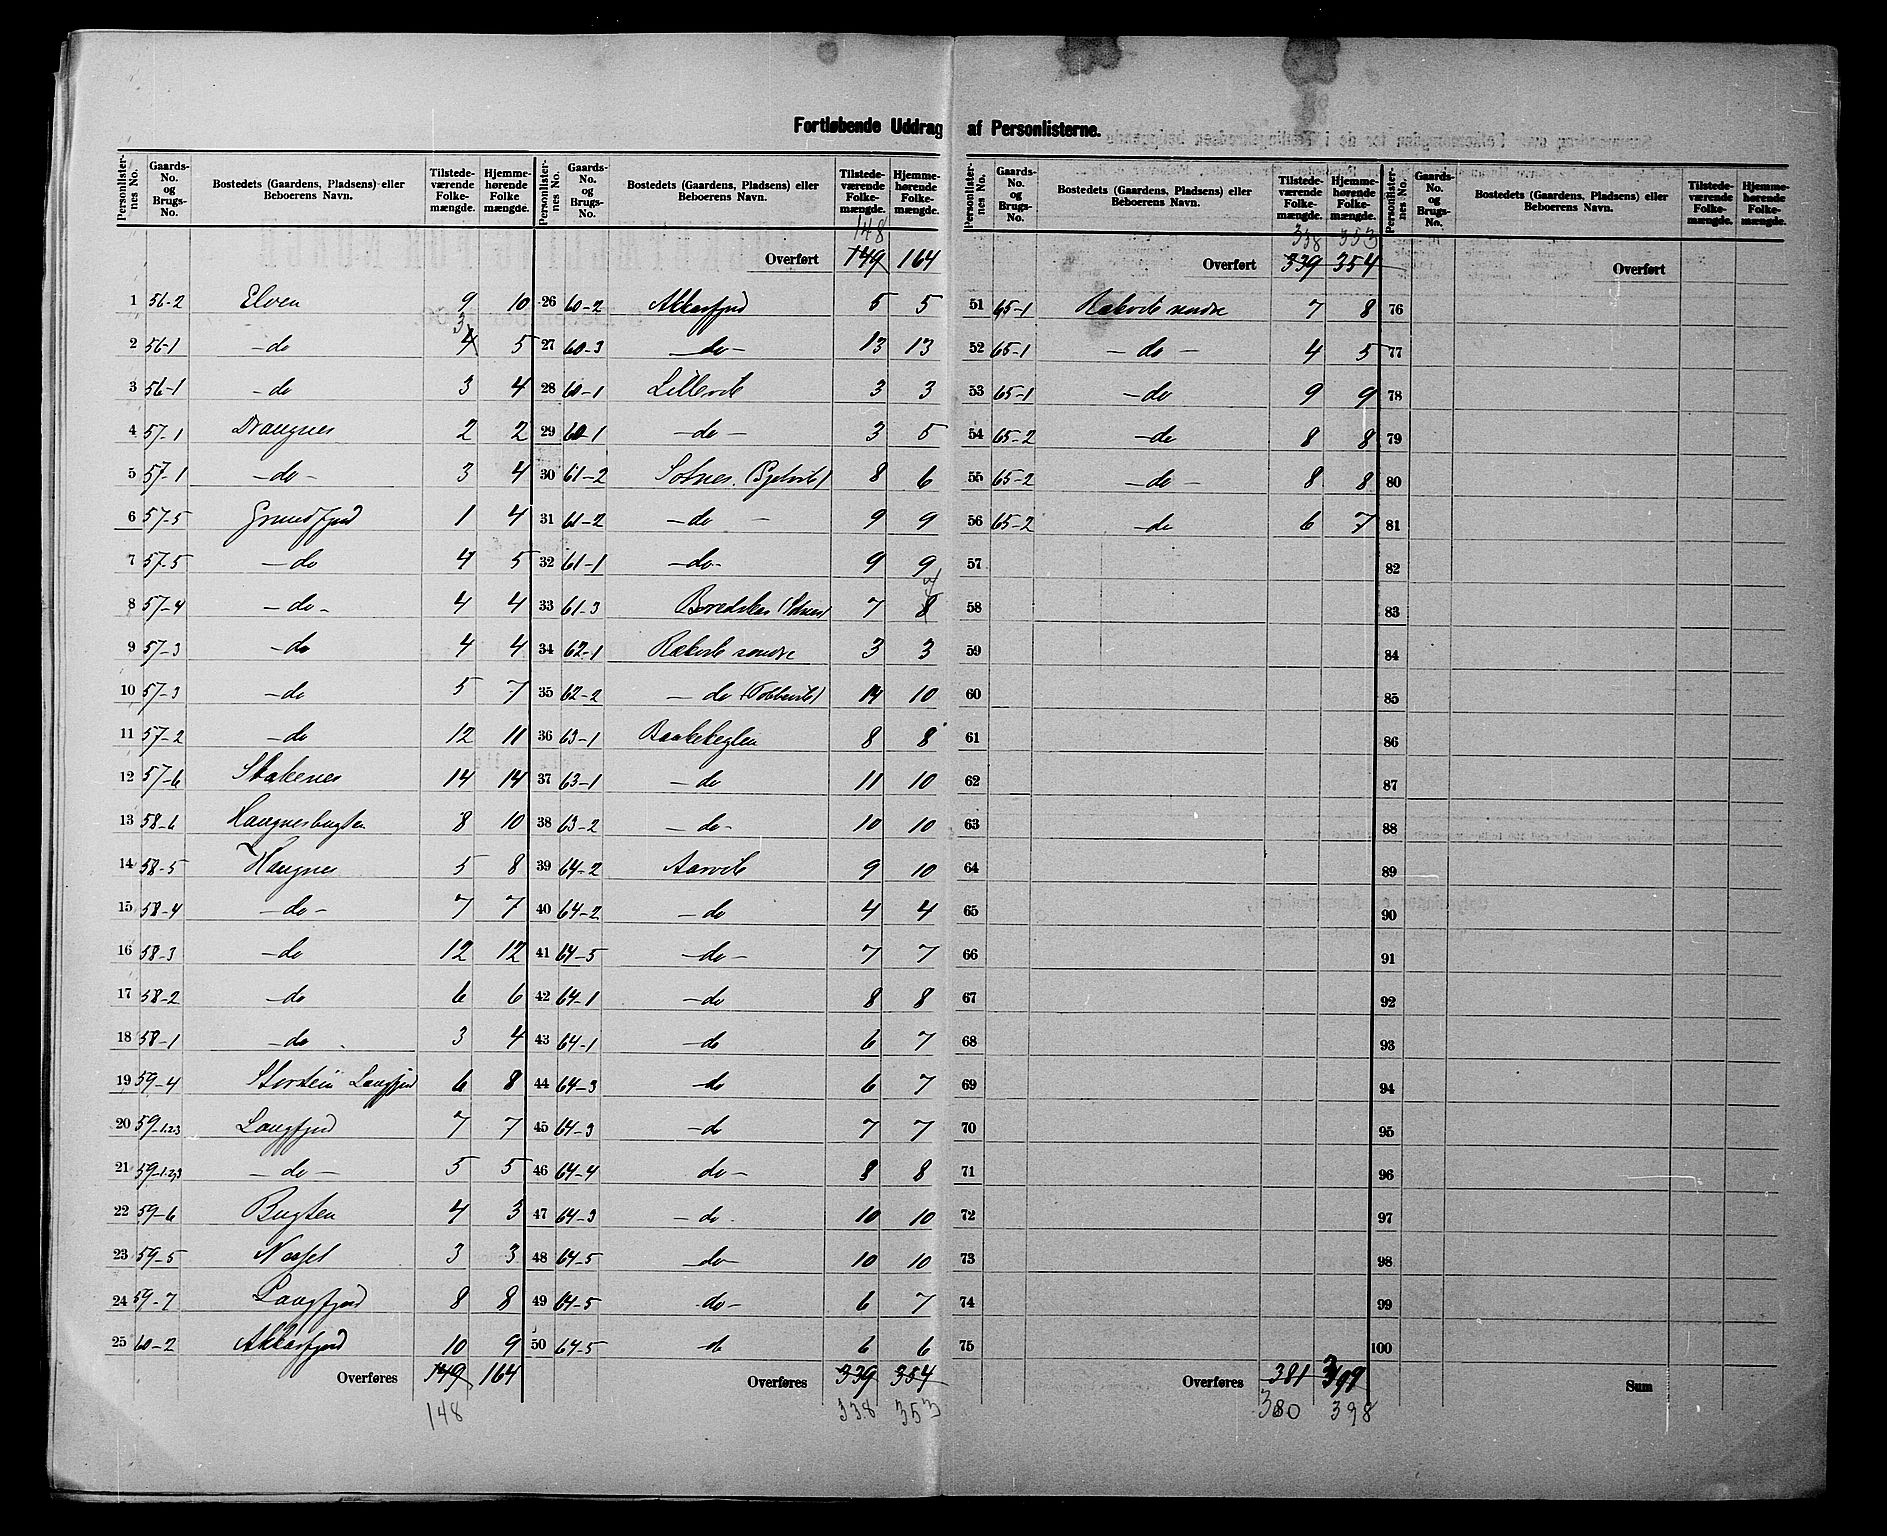 Fortløbende Uddrag af Personlisterne.
Personlister-nes No. | Gaards-No. og Brugs-No. | Bostedets (Gaardens, Pladsens) eller Beboerens Navn. | Tilstede-værende Folke-mængde. | Hjemme-hørende Folke mængde.
1 56-2 Elven 9 10
2 56-1 -do 4 3 5
3 56-1 -do 3 4
4 57-1 Drangnes 2 2
5 57-1 -do- 3 4
6 57-5 Grundfjord 1 4
7 57-5 -do 4 5
8 57-4 -do- 4 4
9 57-3 -do 4 4
10 57-3 -do 5 7
11 57-2 -do 12 11
12 57-6 Stakenes 14 14
13 58-6 Haugnesbugten 8 10
14 58-5 Haugnes 5 8
15 58-4 -do- 7 7
16 58-3 -do 12 12
17 58-2 -do 6 6
18 58-1 -do 3 4
19 59-4 Storstein Langfjord 6 8
20 59-1.2.3 Langfjord 7 7
21 59-1.2.3 -do- 5 5
22 59-6 Bugten 4 3
23 59-5 3 3
24 59-7 Langfjord 8 8
25 60-2 Akkarfjord 10 9
Overføres 149 164
148
Personlister-nes No. | Gaards-No. og Brugs-No. | Bostedets (Gaardens, Pladsens) eller Beboerens Navn. | Tilstede-værende Folke-mængde. | Hjemme-hørende Folke-mængde.
148
Overført 149 164
26 60-2 Akkarfjord 5 5
27 60-3 -do- 13 13
28 60-1 Lillevik 3 3
29 60-1 -do- 3 5
30 61-2 8 6
31 61-2 -do- 9 9
32 61-1 -do- 9 9
33 61-3 7 8 7
34 62-1 Rækvik søndre 3 3
35 62-2 -do 14 10
36 63-1 Baakekeglen 8 8
37 63-1 -do 11 10
38 63-2 -do- 10 10
39 64-2 Aarvik 9 10
40 64-2 -do 4 4
41 64-5 -do- 7 7
42 64-1 -do 8 8
43 64-1 -do 6 7
44 64-3 -do 6 7
45 64-3 -do 7 7
46 64-4 do- 8 8
47 64-3 -do. 10 10
48 64-5 -do- 10 10
49 64-5 -do- 6 7
50 64-5 do 6 6
Overføres 339 354
338 353
Personlister-nes No. | Gaards-No. og Brugs-No. | Bostedets (Gaardens, Pladsens) eller Beboerens Navn. | Tilstede-værende Folke-mængde. | Hjemme-hørende Folke-mængde.
338 353
Overført 339 354
51 65-1 Rækvik søndre 7 8
52 65-1 -do- 4 5
53 65-1 -do 9 9
54 65-2 -do 8 8
55 65-2 -do- 8 8
56 65-2 -do 6 7
57
58
59
60
61
62
63
64
65
66
67
68
69
70
71
72
73
74
75
Overføres 381 399
380 398
Personlister-nes No. | Gaards-No. og Brugs-No. | Bostedets (Gaardens, Pladsens) eller Beboerens Navn. | Tilstede-værende Folke-mængde. | Hjemme-hørende Folke-mængde.
Overført
76
77
78
79
80
81
82
83
84
85
86
87
88
89
90
91
92
93
94
95
96
97
98
99
100
Sum